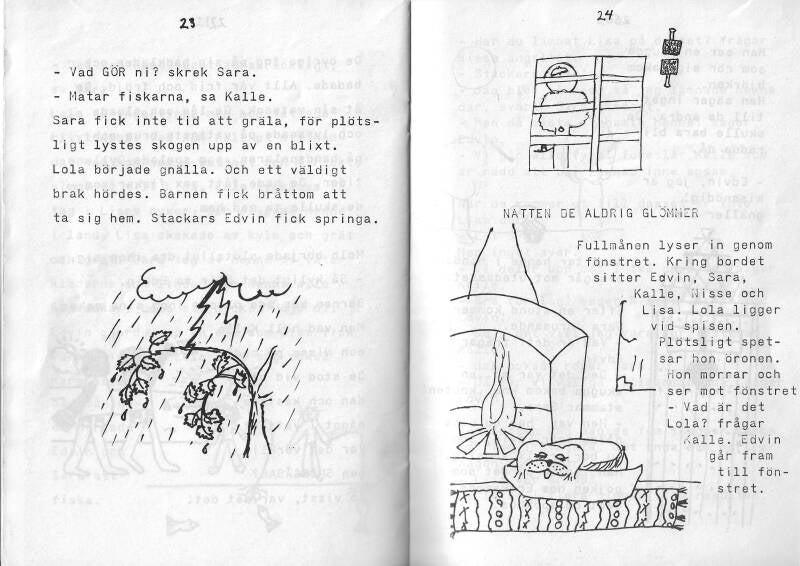 23
- Vad GÖR ni? skrek Sara.
- Matar fiskarna, sa Kalle.
Sara fick inte tid att gräla, för plöts-
ligt lystes skogen upp av en blixt.
Lola började gnälla. Och ett väldigt
brak hördes. Barnen fick bråttom att
ta sig hem. Stackars Edvin fick springa.
24
NATTEN DE ALDRIG GLÖMMER
Fullmånen lyser in genom
fönstret. Kring bordet
sitter Edvin, Sara,
Kalle, Nisse och
Lisa. Lola ligger
vid spisen.
Plötsligt spet-
sar hon öronen.
Hon morrar och
ser mot fönstret
- Vad är det
Lola? frågar
Kalle. Edvin
går fram
till fön-
stret.